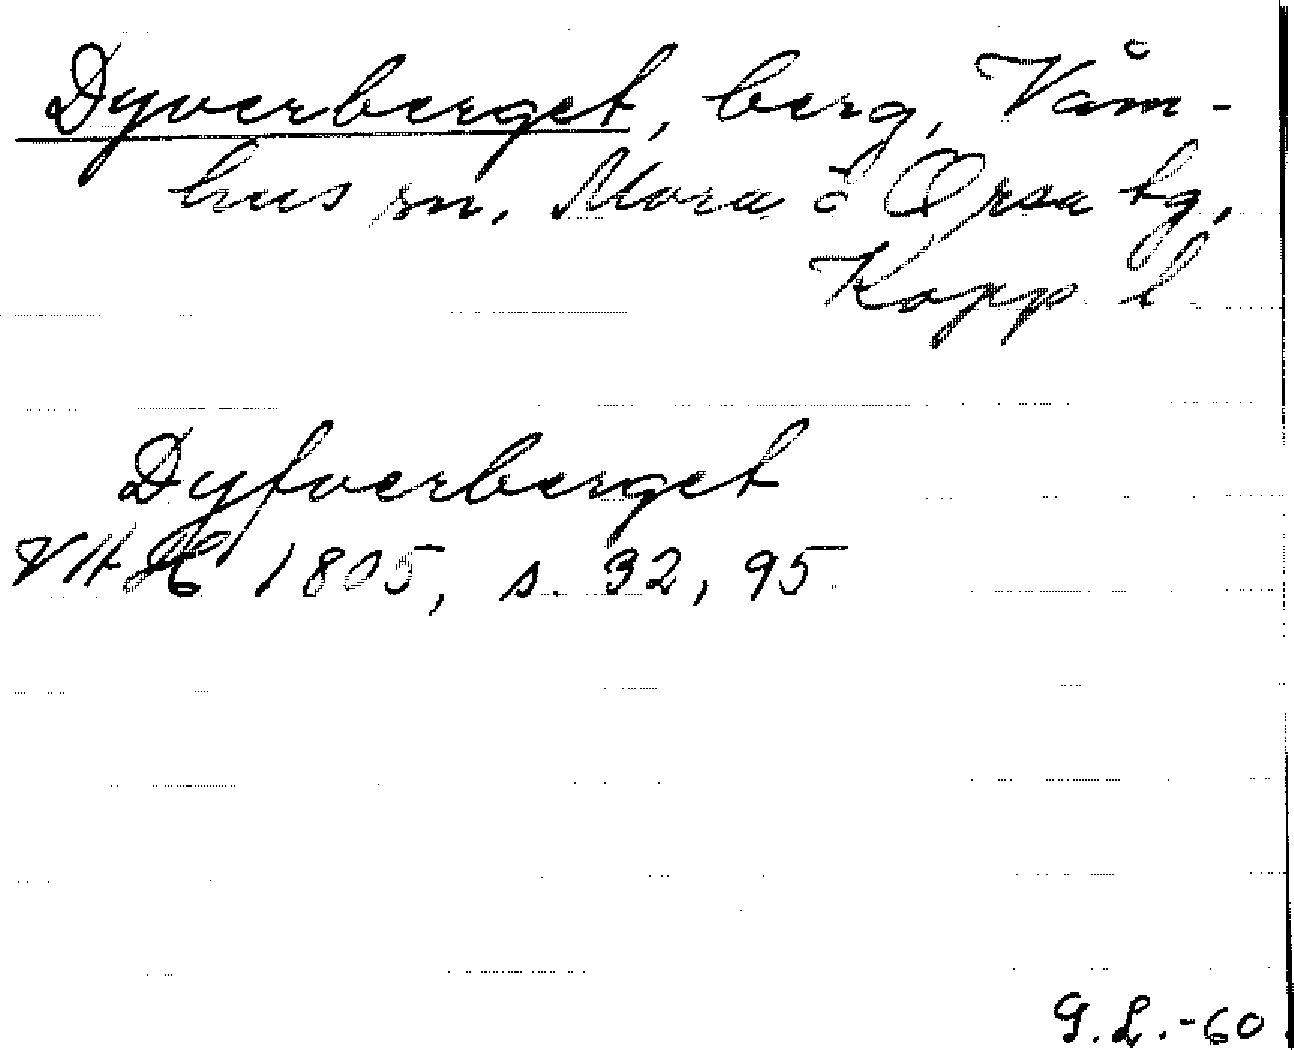 Dyverberget, berg, Våm-
hus sn. Mora o Orsa tg,
Kopp l
Dyfverberget
1805, s. 32, 95
G.L.-60